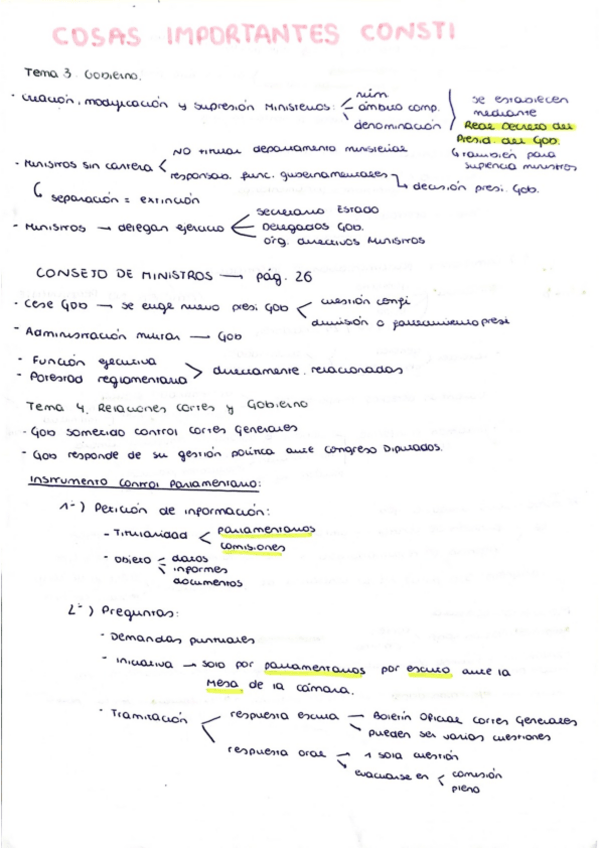 COSAS IMPORTANTES CONSTI
Tema 3. Gobierno.
· Creación, modificación y supresión Ministerios: núm
ámbito comp.
denominación
se establecen
mediante
Real Decreto del
Presid. del Gob.
↳ también para
supencia ministros
· Ministros sin cartera NO titular departamento ministerial
responsab. func. gubernamentales → decisión presi. Gob.
↳ separación = extinción
· Ministros → delegan ejercicio secretario Estado
Delegados Gob.
org. directivos Ministros
CONSEJO DE MINISTROS → pág. 26
· Cese Gob → se elige nuevo presi Gob cuestión confi
dimisión o fallecimiento presi
· Administración militar → Gob
· Función ejecutiva
· Potestad reglamentaria > directamente relacionadas
Tema 4. Relaciones Cortes y Gobierno
· Gob sometido control Cortes Generales
· Gob responde de su gestión política ante Congreso Diputados.
Instrumento control Parlamentario:
1º) Petición de información:
- Titularidad < parlamentarios
comisiones
· objeto - datos
informes
documentos
2º) Preguntas:
· Demandas puntuales
· Iniciativa → solo por parlamentarios por escrito ante la
Mesa de la cámara.
· Tramitación respuesta escrita — Boletín Oficial Cortes Generales
pueden ser varias cuestiones
respuesta oral → 1 sola cuestión
evacuarse en < comisión
pleno